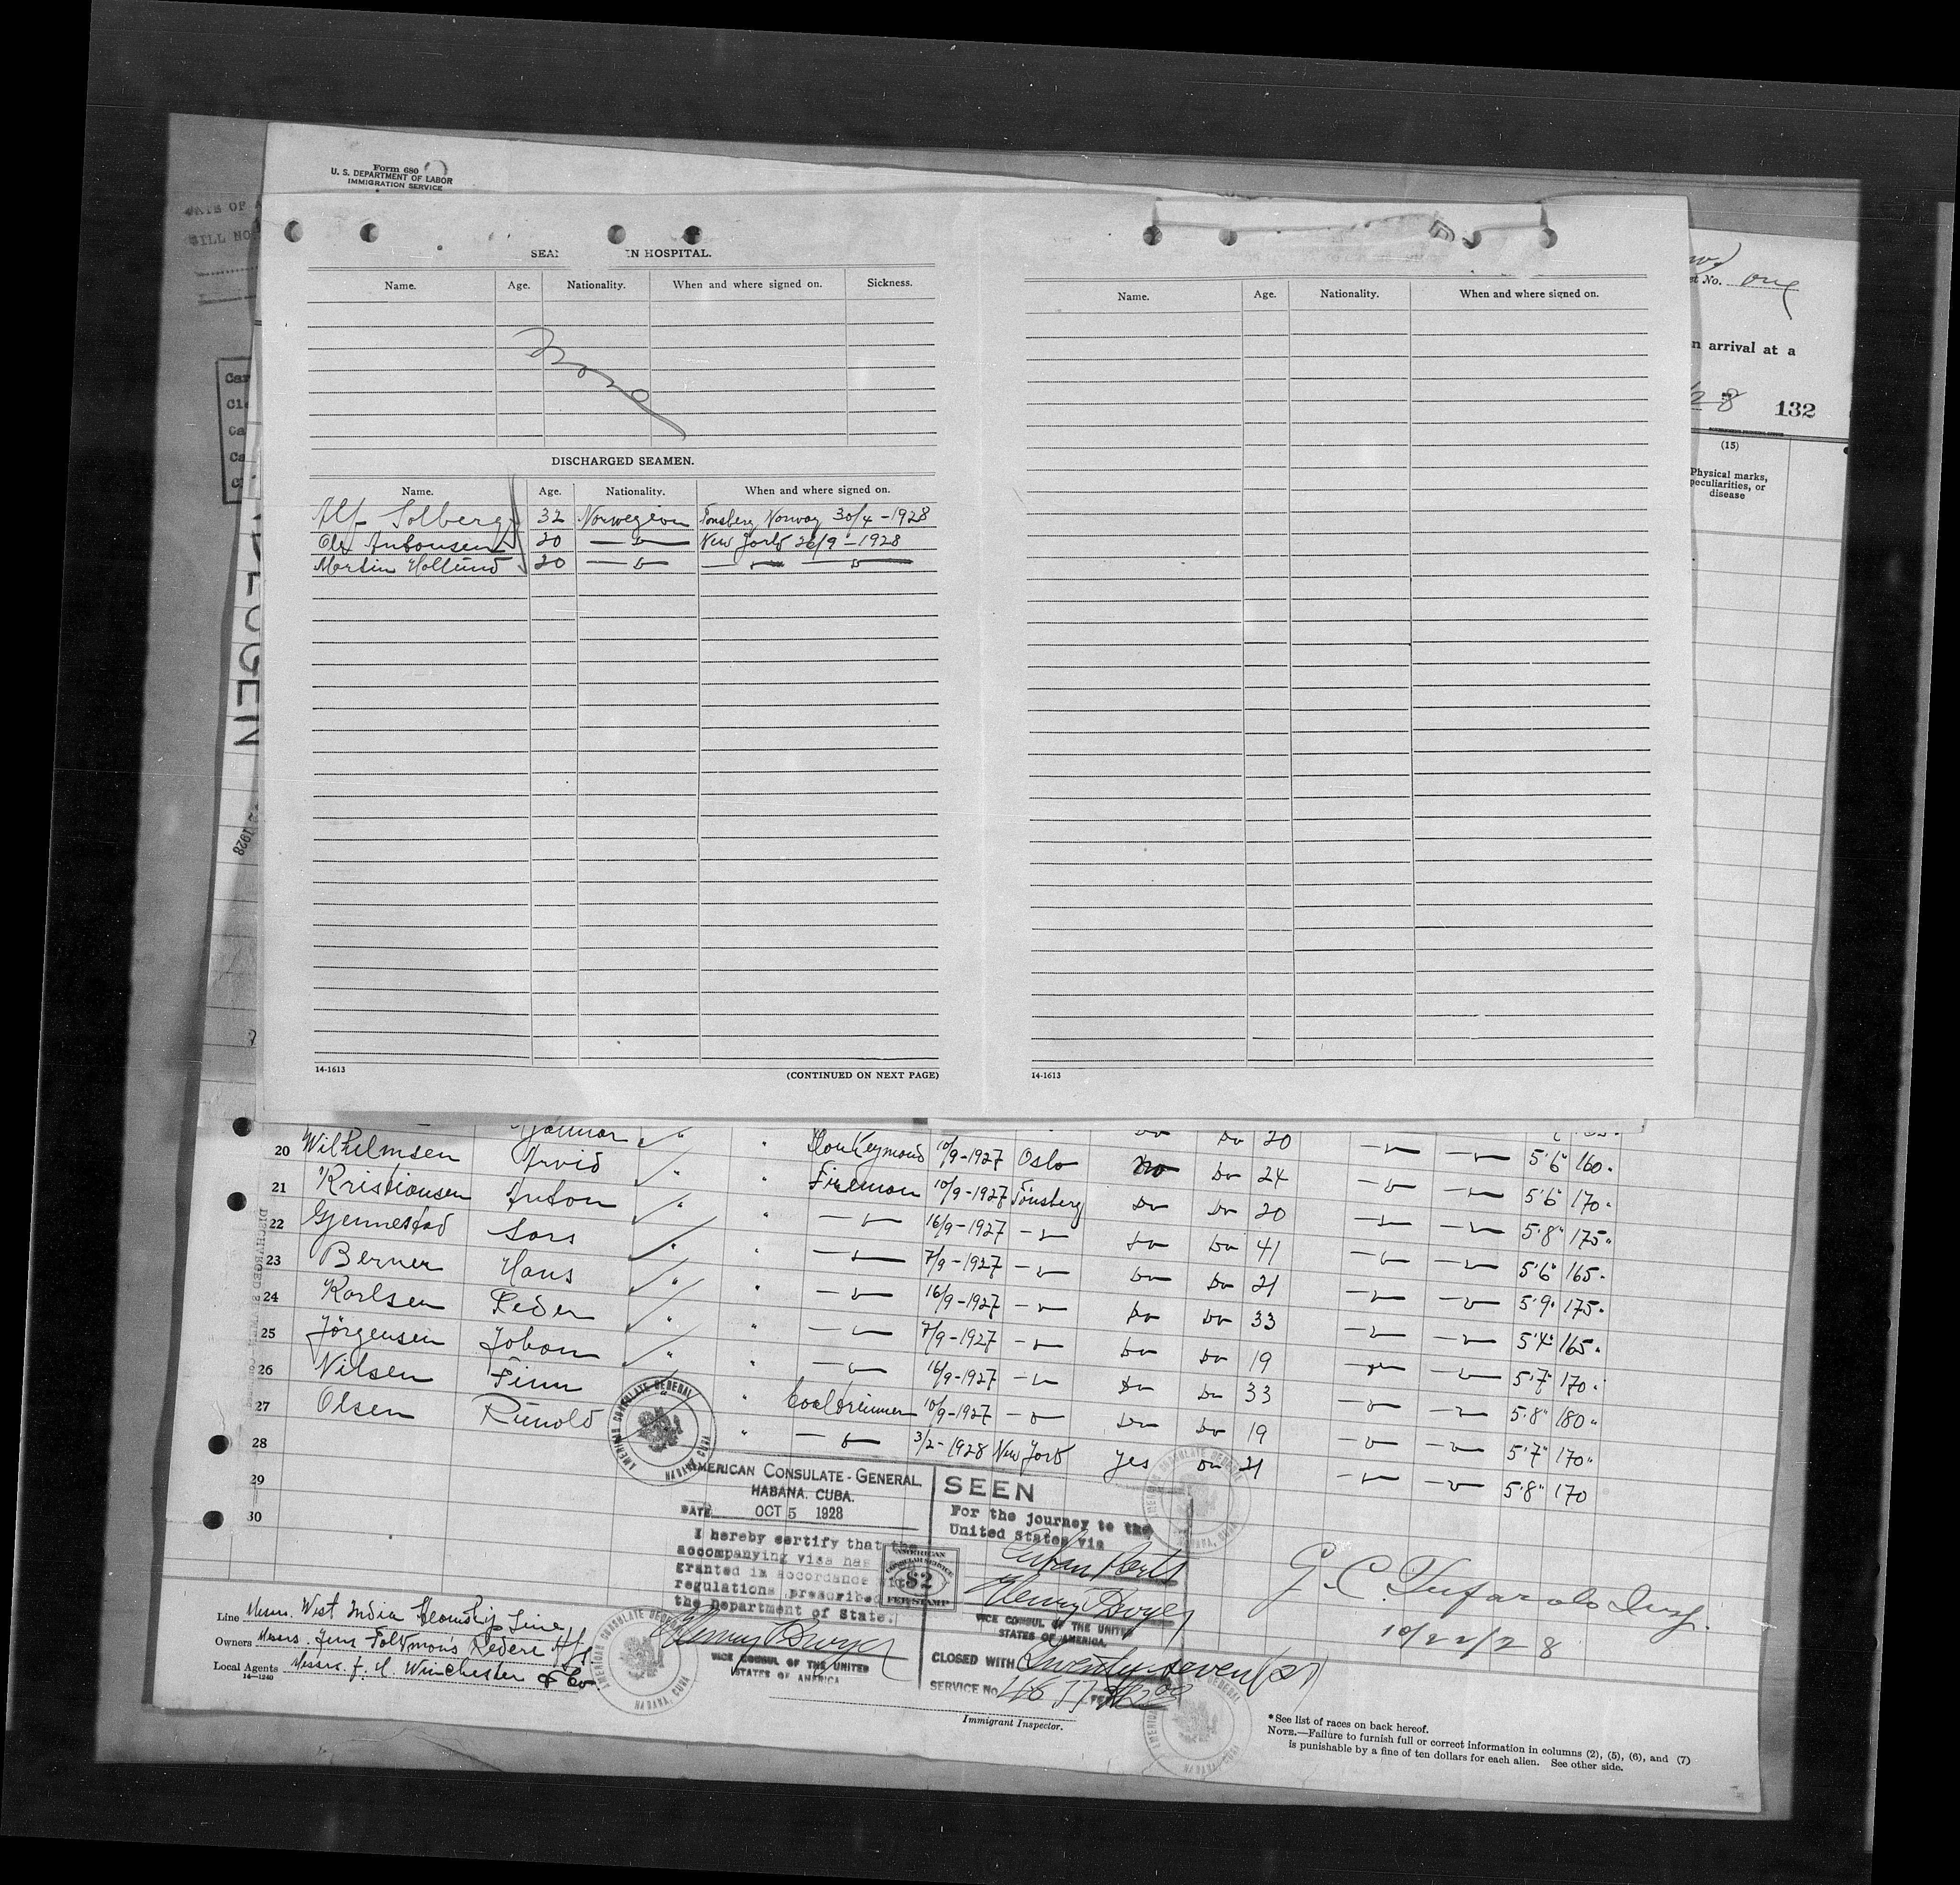 Form 680
U. S. DEPARTMENT OF LABOR
IMMIGRATION SERVICE
IN HOSPITAL.
Name. Age. Nationality. When and where signed on. Sickness.
None
DISCHARGED SEAMEN.
Name. Age. Nationality. When and where signed on.
Alf Solberg 32 Norwegian Tonsberg Norway 30/4-1928
20 New York 26/9-1928
Martin 20
14-1613
(CONTINUED ON NEXT PAGE)
Name. Age. Nationality. When and where signed on.
14-1613
t No. one
n arrival at a
28 132
(15)
Physical marks,
peculiarities, or
disease
1928
Do Do 20
20 Wilhelmsen Arvid " " Donkeyman 10/9-1927 Oslo Do 24 5'6" 160"
21 Kristiansen Anton " " Fireman 10/9-1927 Tönsberg Do Do 20 5'6" 170"
22 Gjennestad Lars " " 16/9-1927 Do Do 41 5'8" 175"
23 Berner Hans " " 7/9-1927 Do Do 21 5'6" 165"
24 Karlsen Peder " " 16/9-1927 Do Do 33 5'9" 175"
25 Jörgensen Johan " " 7/9-1927 Do Do 19 5'4" 165"
26 Nilsen Finn " " 16/9-1927 Do Do 33 5'7" 170"
27 Olsen " 10/9-1927 Do Do 19 5'8" 180"
28 " 3/2-1928 New York Yes Do 21 5'7" 170"
29 5'8" 170
30
AMERICAN CONSULATE GENERAL
HABANA, CUBA
AMERICAN CONSULATE-GENERAL,
HABANA, CUBA.
DATE OCT 5 1928
I hereby certify that the
accompanying visa has
granted in accordance
regulations prescribed
the Department of State.
Henry Dwyer
VICE CONSUL OF THE UNITED
STATES OF AMERICA
AMERICAN
CONSULAR SERVICE
$2
FEE STAMP
SEEN
For the journey to the
United States via
Cuban Ports
Henry Dwyer
VICE CONSUL OF THE UNITED
STATES OF AMERICA.
CLOSED WITH Twenty seven (27)
SERVICE No.
10/22/28
Line Messrs. West India Steamship Line
Owners Messrs.
Local Agents Messrs. J. H. Winchester & Co
14-1240
Immigrant Inspector.
* See list of races on back hereof.
NOTE.—Failure to furnish full or correct information in columns (2), (5), (6), and (7)
is punishable by a fine of ten dollars for each alien. See other side.